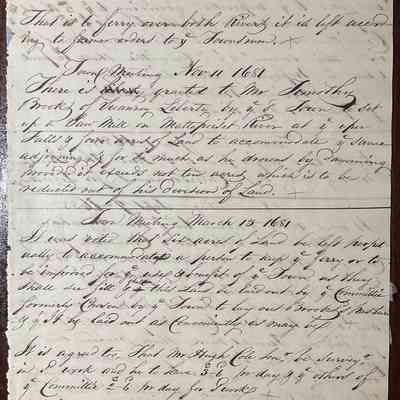 That is to ferry over both Rivers it is left accord
ing to former orders to ye Townsmen.
Town Meeting Nov 11 1681
There is granted to Mr Timothy
Brooks of Swansea Liberty by ye Town to set
up a Saw Mill on Mattapoiset River at ye uper
Falls & four acres of Land to accommodate ye same
adjoining & for so much as he drowns by damming
provided it exceeds not ten acres which is to be
deducted out of his Division of Land.
Town Meeting March 13 1681
It was voted that Six acres of Land be left perpet
ually to accommodate a person to keep ye ferry or to
be improved for ye use of ye Town as they
shall see fit this Land be laid out by ye Committee
formerly Chosen by ye Town to lay out Brooks
& yt it be laid out as conveniently as may be
It is agreed too, That Mr Hugh Cole Senr be Surveyr
in ye work and he to have 3-6 pr day & ye others of
ye Committee 2-6 pr day for ye work